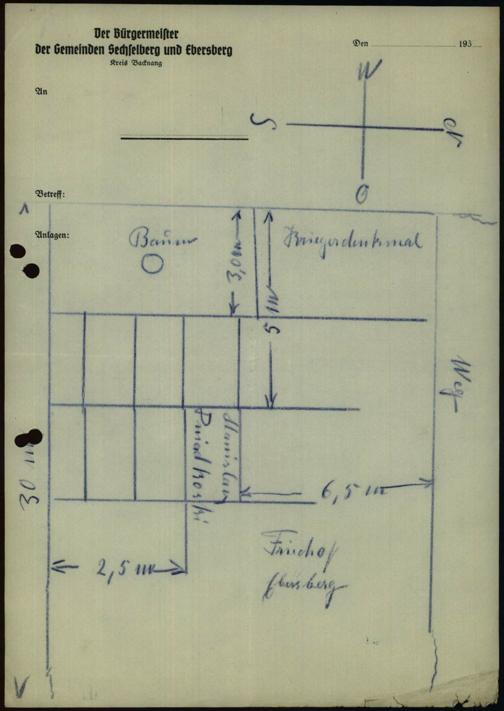 Der Bürgermeister
der Gemeinden Sechselberg und Ebersberg
Kreis Backnang
Den 195
An
W
S
N
O
Betreff:
Anlagen:
Baum
Kriegerdenkmal
3,0 m
5 m
Weg
Stanislaw
30 m
6,5 m
2,5 m
Friedhof
Ebersberg